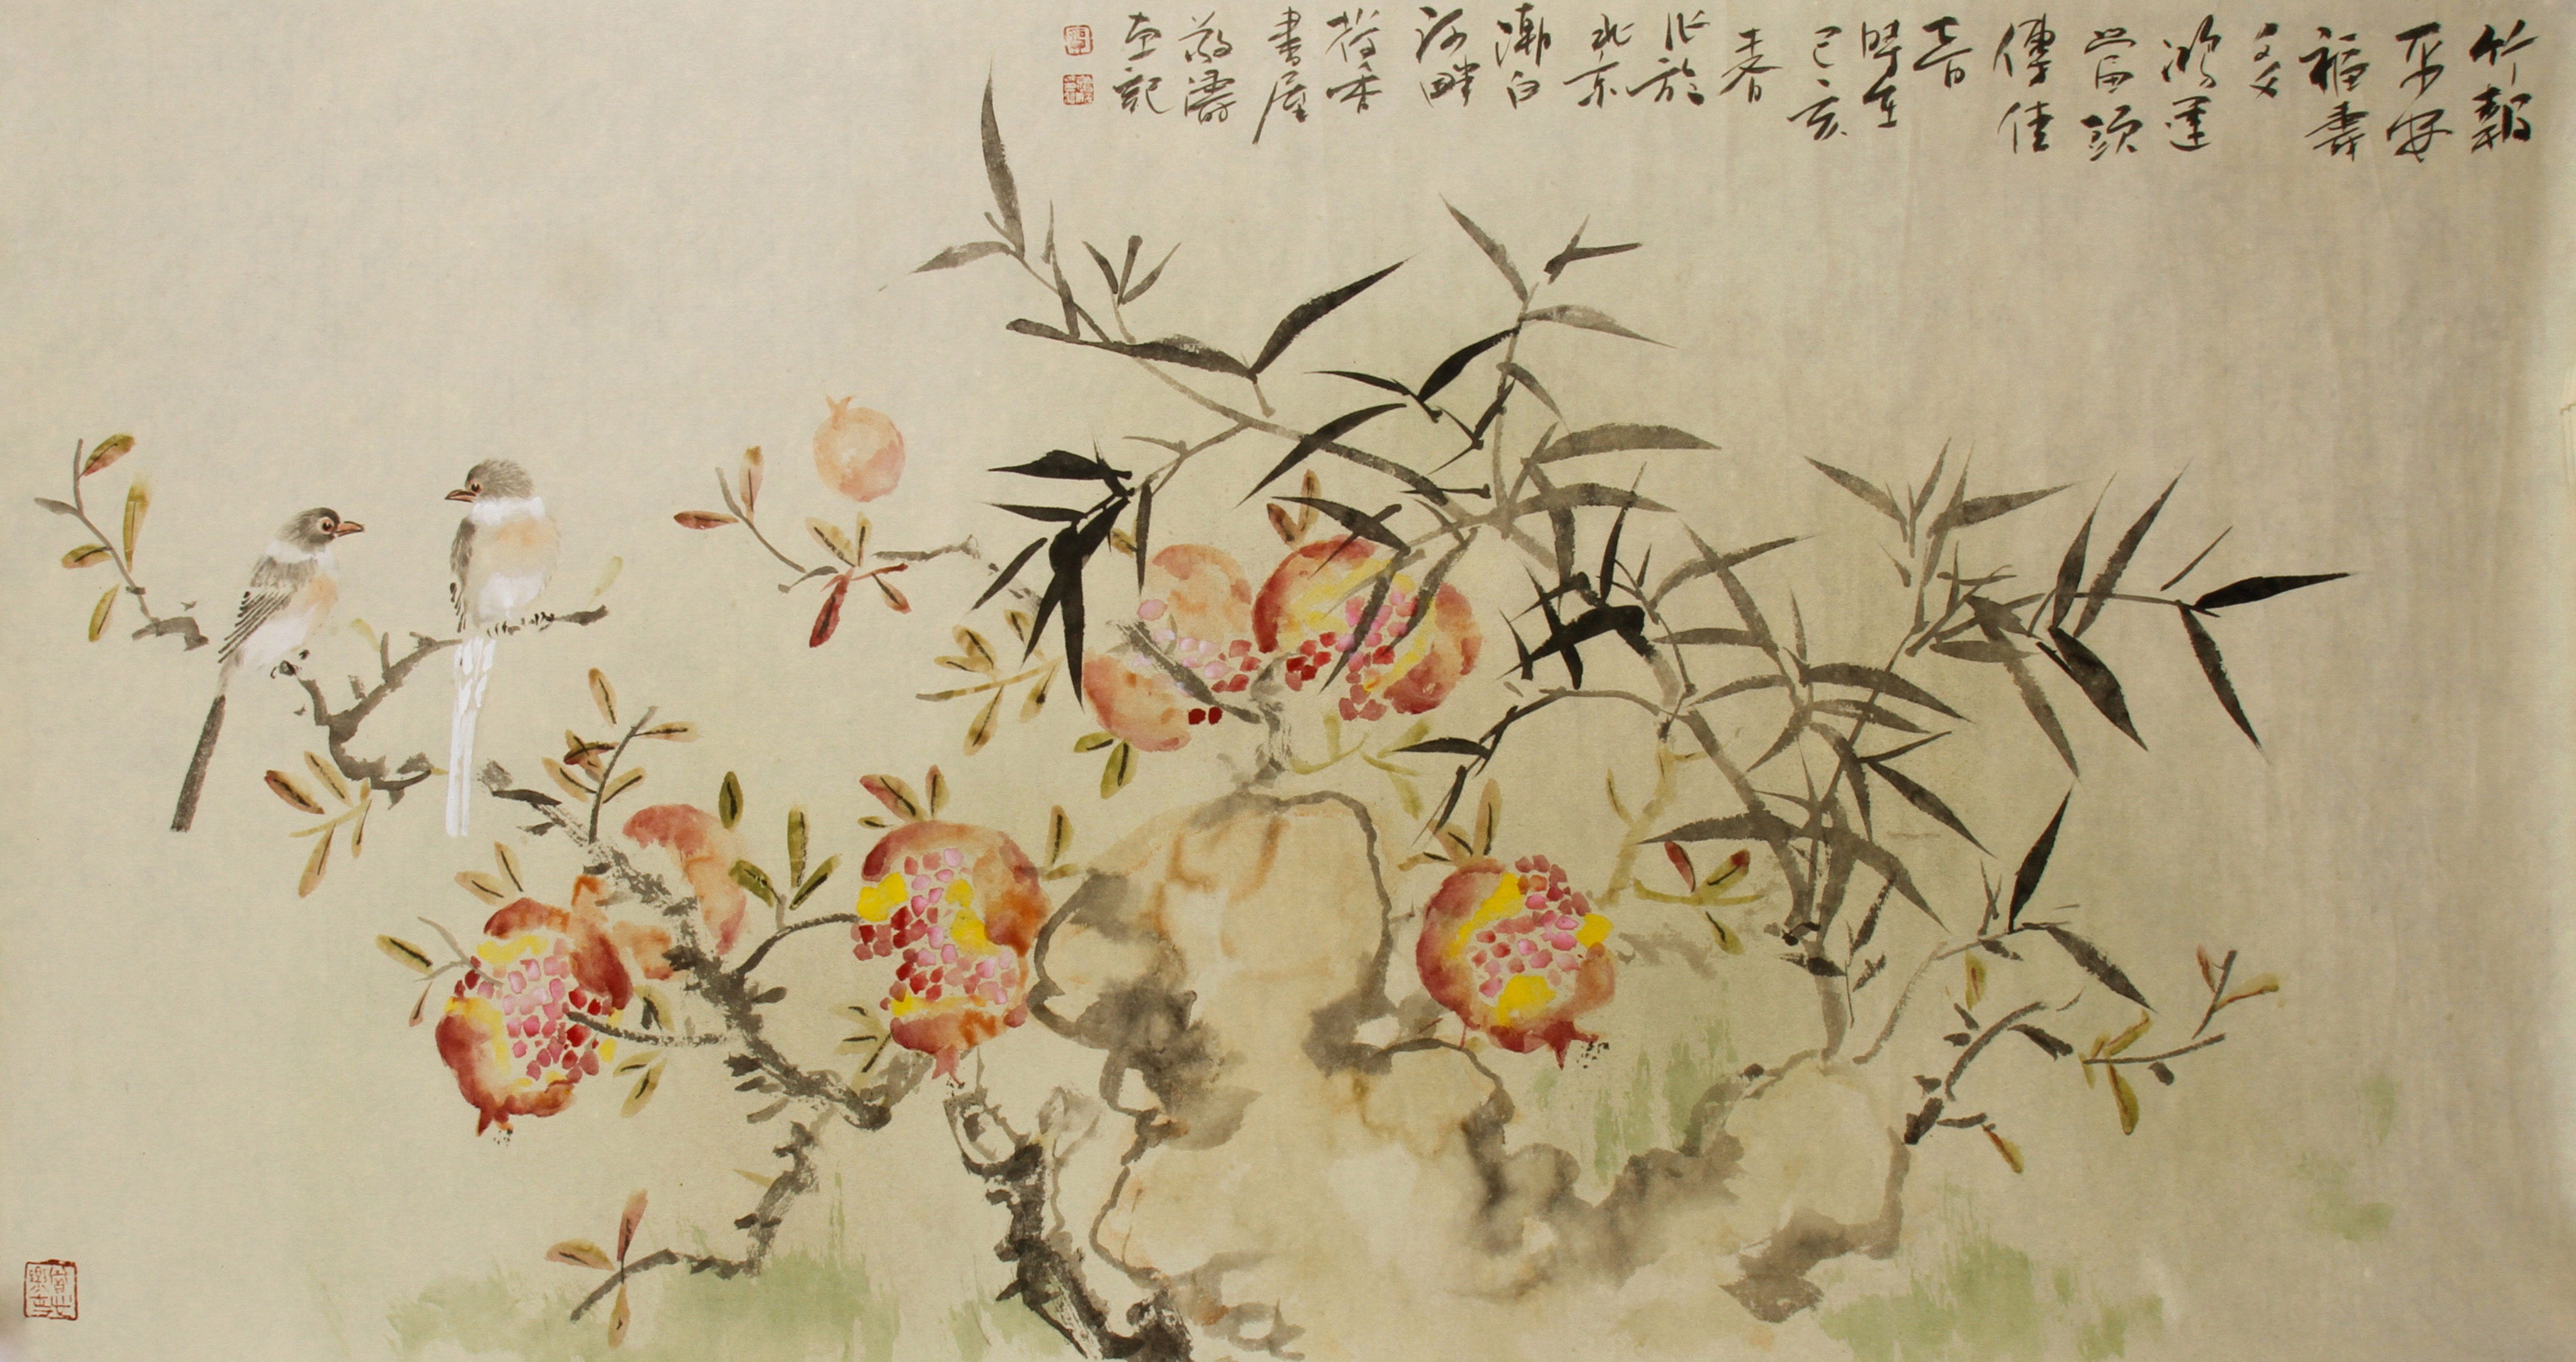 竹報
平安
福壽
雙
鴻運
當頭
傳佳
音
時在
己亥
春
作於
北京
潮白
河畔
荷香
書屋
敬濤
畫記